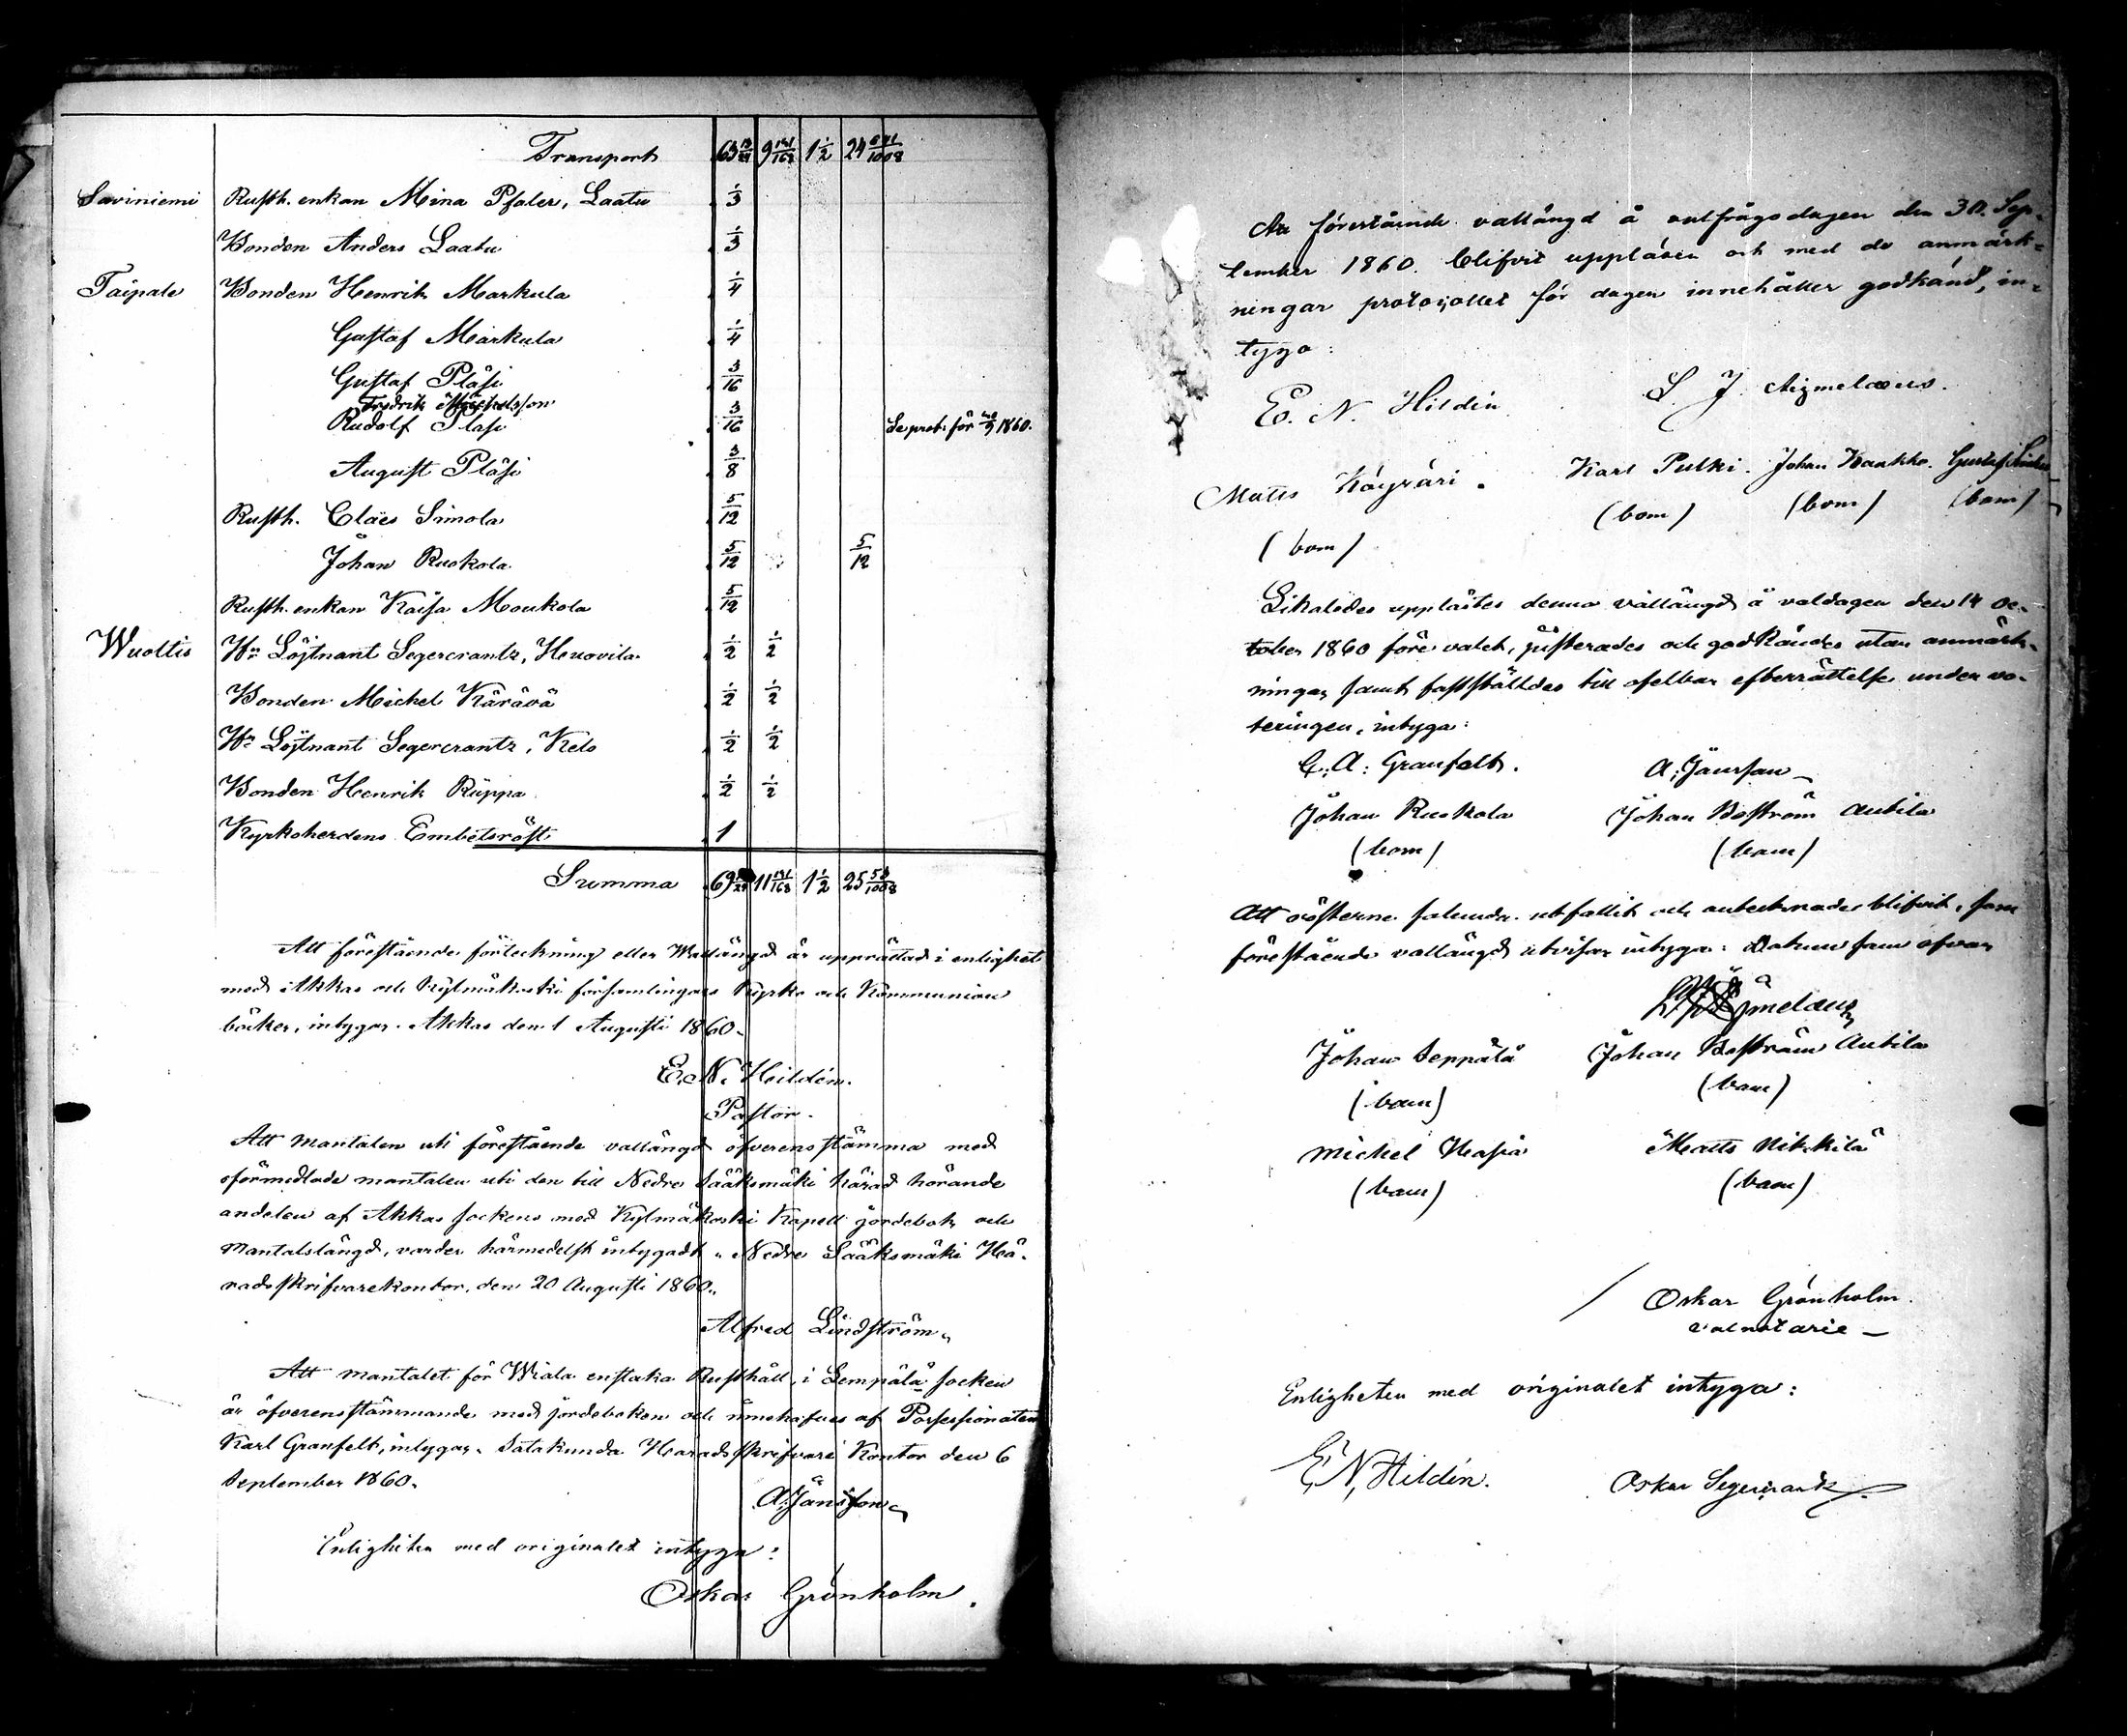 Transport 63 13/24 9 141/168 1 1/2 24 641/1008
Saviniemi Rusth. enkan Mina Pfaler, Laatu 1/3
Bonden Anders Laatu 1/3
Taipale Bonden Henrik Markula 1/4
Gustaf Markula 1/4
Gustaf Pläsi 3/16
Fredrik Michelsson
Rudolf Pläsi 3/16 Se prot. för 30/9 1860.
August Pläsi 3/8
Rusth. Claës Simola 5/12
Johan Ruokola 5/12 5/12
Rusth. enkan Kaisa Moukola 5/12
Wuoltis Hr Löjtnant Segercrantz, Heuovila 1/2 1/2
Bonden Michel Kärävä 1/2 1/2
Hr Löjtnant Segercrantz, Kelo 1/2 1/2
Bonden Henrik Rüppa 1/2 1/2
Kyrkoherdens Embetsröst 1
Summa 69 11 141/168 1 1/2 25 53/1008
Att förestående förteckning eller Wallängd är upprättad i enlighet
med Akkas och Kylmäkoski församlingars Kyrko och Kommunion
böcker, intygar. Akkas den 1 Augusti 1860.
E. N. Hildén.
Pastor.
Att mantalen uti förestående vallängd öfverensstämma med
oförmedlade mantalen uti den till Nedre Sääksmäki härad hörande
andelen af Akkas socken med Kylmäkoski Kapell jordebok och
Mantalslängd, varder härmedelst intygadt. Nedre Sääksmäki Hä-
radsskrifvarekontor, den 20 Augusti 1860.
Alfred Lindström
Att mantalet för Wiala enstaka Rusthåll, i Lempälä socken
är öfverensstämmande med jordeboken och innehafves af Possessionaten
Karl Granfelt, intygar. Satakunda Häradsskrifvare Kontor den 6
September 1860.
A. Jansson
Enligheten med originalet intyga:
Oskar Grönholm.
förestående vallängd å valfrågodagen den 30. Sep-
tember 1860. blifvit uppläsen och med de anmärk-
ningar protocollet för dagen innehåller godkänd, in-
tyga:
E. N. Hildén L J Aejmelæus.
Matts Köyräri. Karl Pulki. Johan Kaakko. Gustaf
(bom) (bom) (bom)
(bom)
Likaledes upplästes denna vallängd å valdagen den 14 Oc-
tober 1860 före valet, justerades och godkändes utan anmärk-
ningar samt fastställdes till ofelbar efterrättelse under vo-
teringen, intyga:
C. A. Granfelt. A. Jansson
Johan Ruokola Johan Boström Anbila
(bom) (bom)
Att rösterne sålunda utfallit och antecknade blifvit, som
förestående vallängd utvisar intyga: Datum som ofvan
L J Aejmelaeus
Johan Seppälä Johan Boström Anbila
(bom) (bom)
Michel Hasia Matts Nikkilä
(bom) (bom)
/ Oskar Grönholm.
valnotarie
Enligheten med originalet intyga:
E. N. Hildén. Oskar